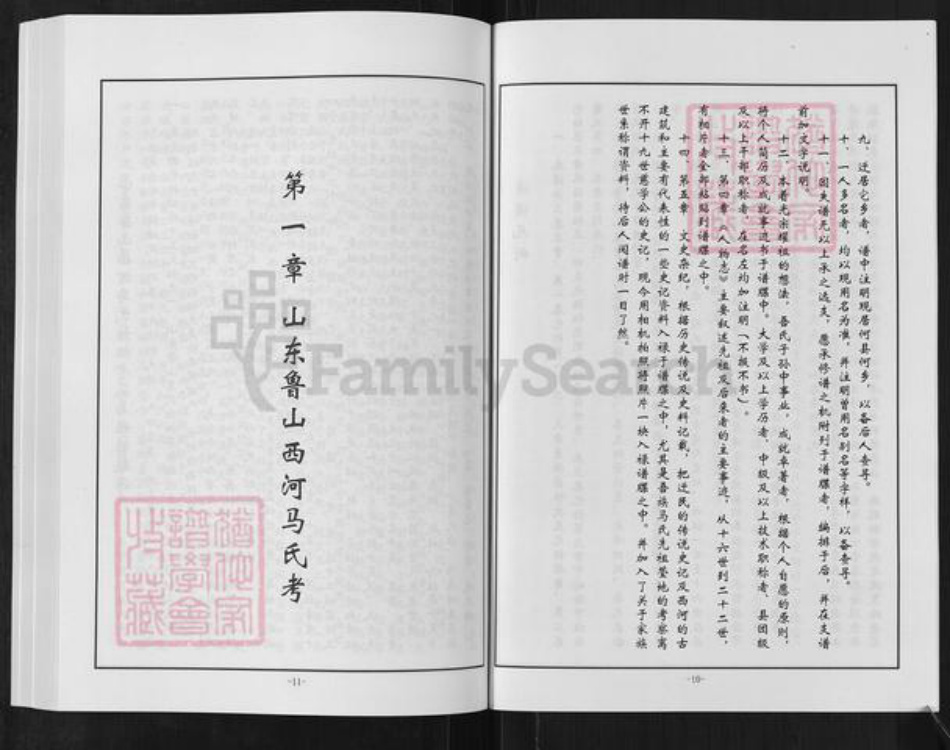 九、迁居它乡者，谱中注明现居何县何乡，以备后人查寻。
十、一人多名者，均以现用名为准，并注明曾用名别名等字样，以备查寻。
十一、因失谱无以上承之远支，愿承修谱之机附列于谱牒者，编排于后，并在支谱
前加文字说明。
十二、本着光宗耀祖的想法，吾氏子孙中事业、成就卓著者，根据个人自愿的原则，
将个人简历及成就事迹书于谱牒中。大学及以上学历者、中级及以上技术职称者、县团级
及以上干部职称者，在名左均加注明（不报不书）。
十三、第四章《人物志》主要叙述先祖及后来者的主要事迹，从十六世到二十二世，
有相片者全部粘贴到谱牒之中。
十四、第五章 文史杂纪，根据历史传说及史料记载，把迁民的传说史记及西河的古
建筑和主要有代表性的一些史记资料入禄于谱牒之中，尤其是吾族马氏先祖茔地的考察离
不开十九世慈学公的史记，现今用相机拍照将照片一块入禄谱牒之中。并加入了关于家族
世系称谓资料，待后人阅谱时一目了然。
-10-
第一章 山东鲁山西河马氏考
-11-
FamilySearch
譜學會
收藏